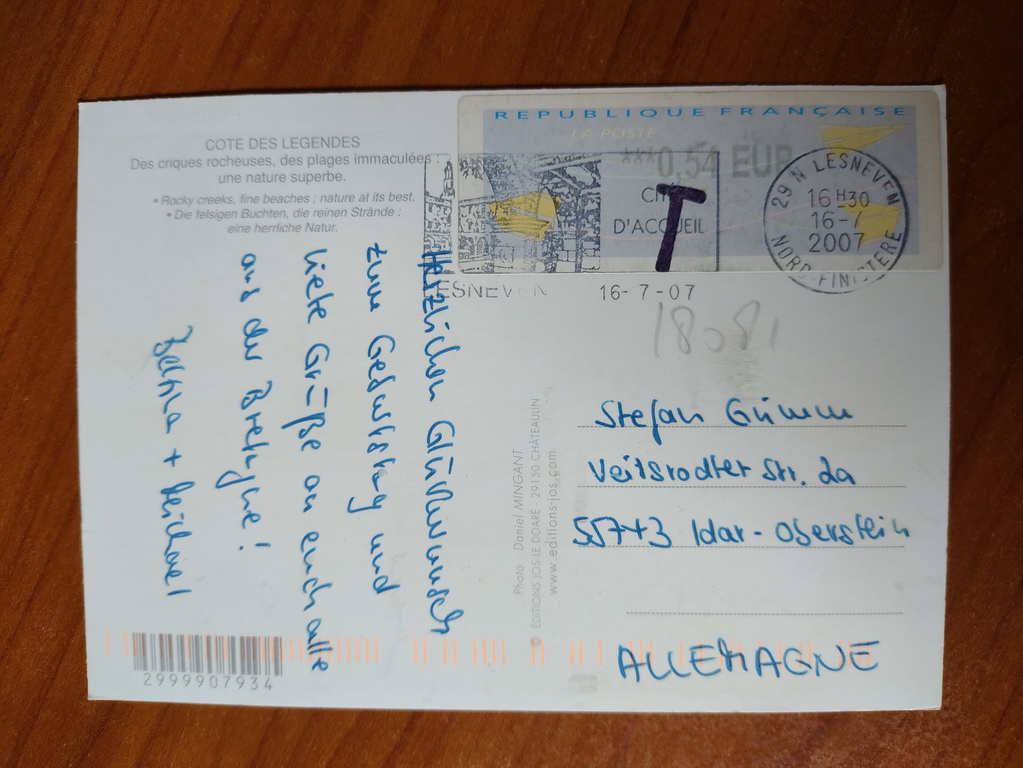 COTE DES LEGENDES
Des criques rocheuses, des plages immaculées :
une nature superbe.
• Rocky creeks, fine beaches : nature at its best.
• Die felsigen Buchten, die reinen Strände :
eine herrliche Natur.
REPUBLIQUE FRANÇAISE
LA POSTE
***0,54 EUR
D'ACCUEIL
T
29 N LESNEVEN
16H30
16-7
2007
NORD-FINISTERE
LESNEVEN
16-7-07
18081
Herzlichen Glückwunsch
zum Geburtstag und
liebe Grüße an euch alle
aus der Bretagne!
+ Michael
Photo : Daniel MINGANT
© ÉDITIONS JOS LE DOARÉ - 29150 CHÂTEAULIN
www.editions-jos.com
Stefan Grimm
Veitsrodter Str. 2a
55743 Idar-Oberstein
ALLEMAGNE
2999907934